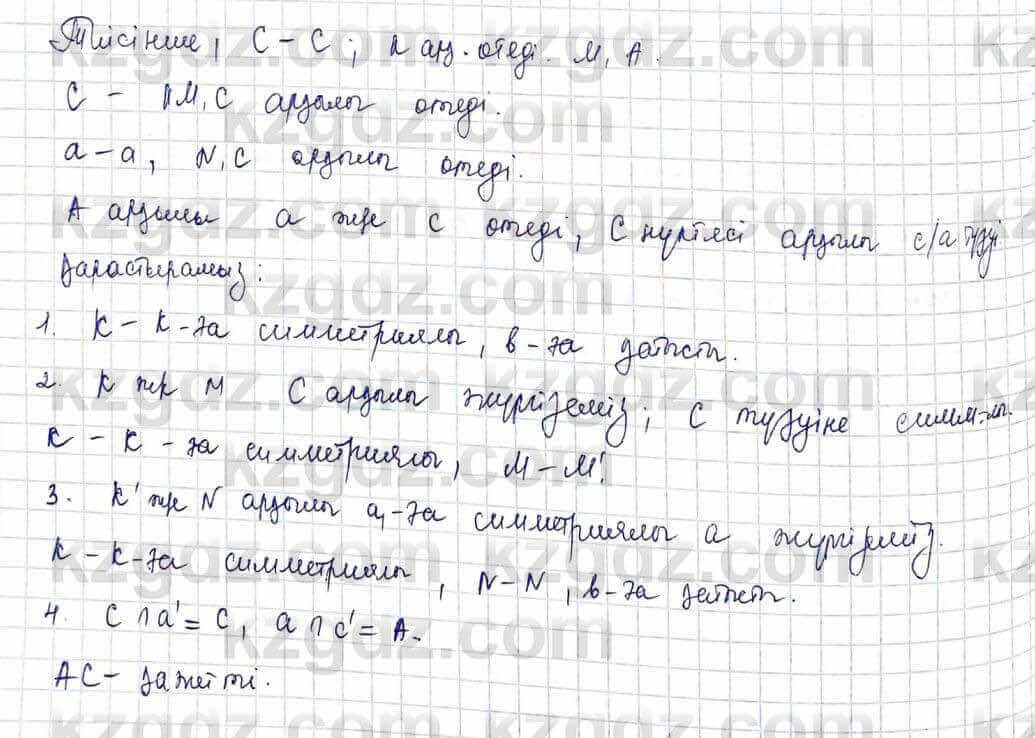 Тиісінше, С – С; К арқ. өтеді. М, А.
С – М, С арқылы өтеді.
а – а, N, С арқылы өтеді.
А арқылы а және с өтеді, С нүктесі арқылы с/а түзуі
қарастырамыз:
1. К – К-ға симметриялы, в-ға қатысты.
2. К және М С арқылы жүргіземіз; С түзуіне симм-лы.
К – К – ға симметриялы, М – М'.
3. К' және N арқылы а,-ға симметриялы а жүргіземіз.
К – К-ға симметриялы, N – N, в-ға қатысты.
4. С ∩ а' = С, а ∩ с' = А.
АС – қажетті.